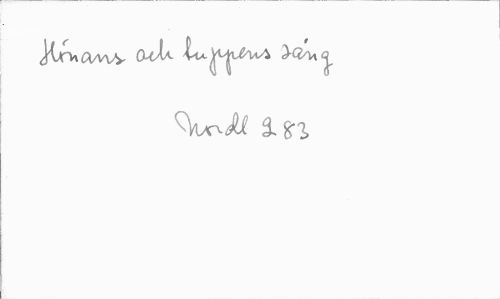 Hönans och tuppens sång
Nordl 283